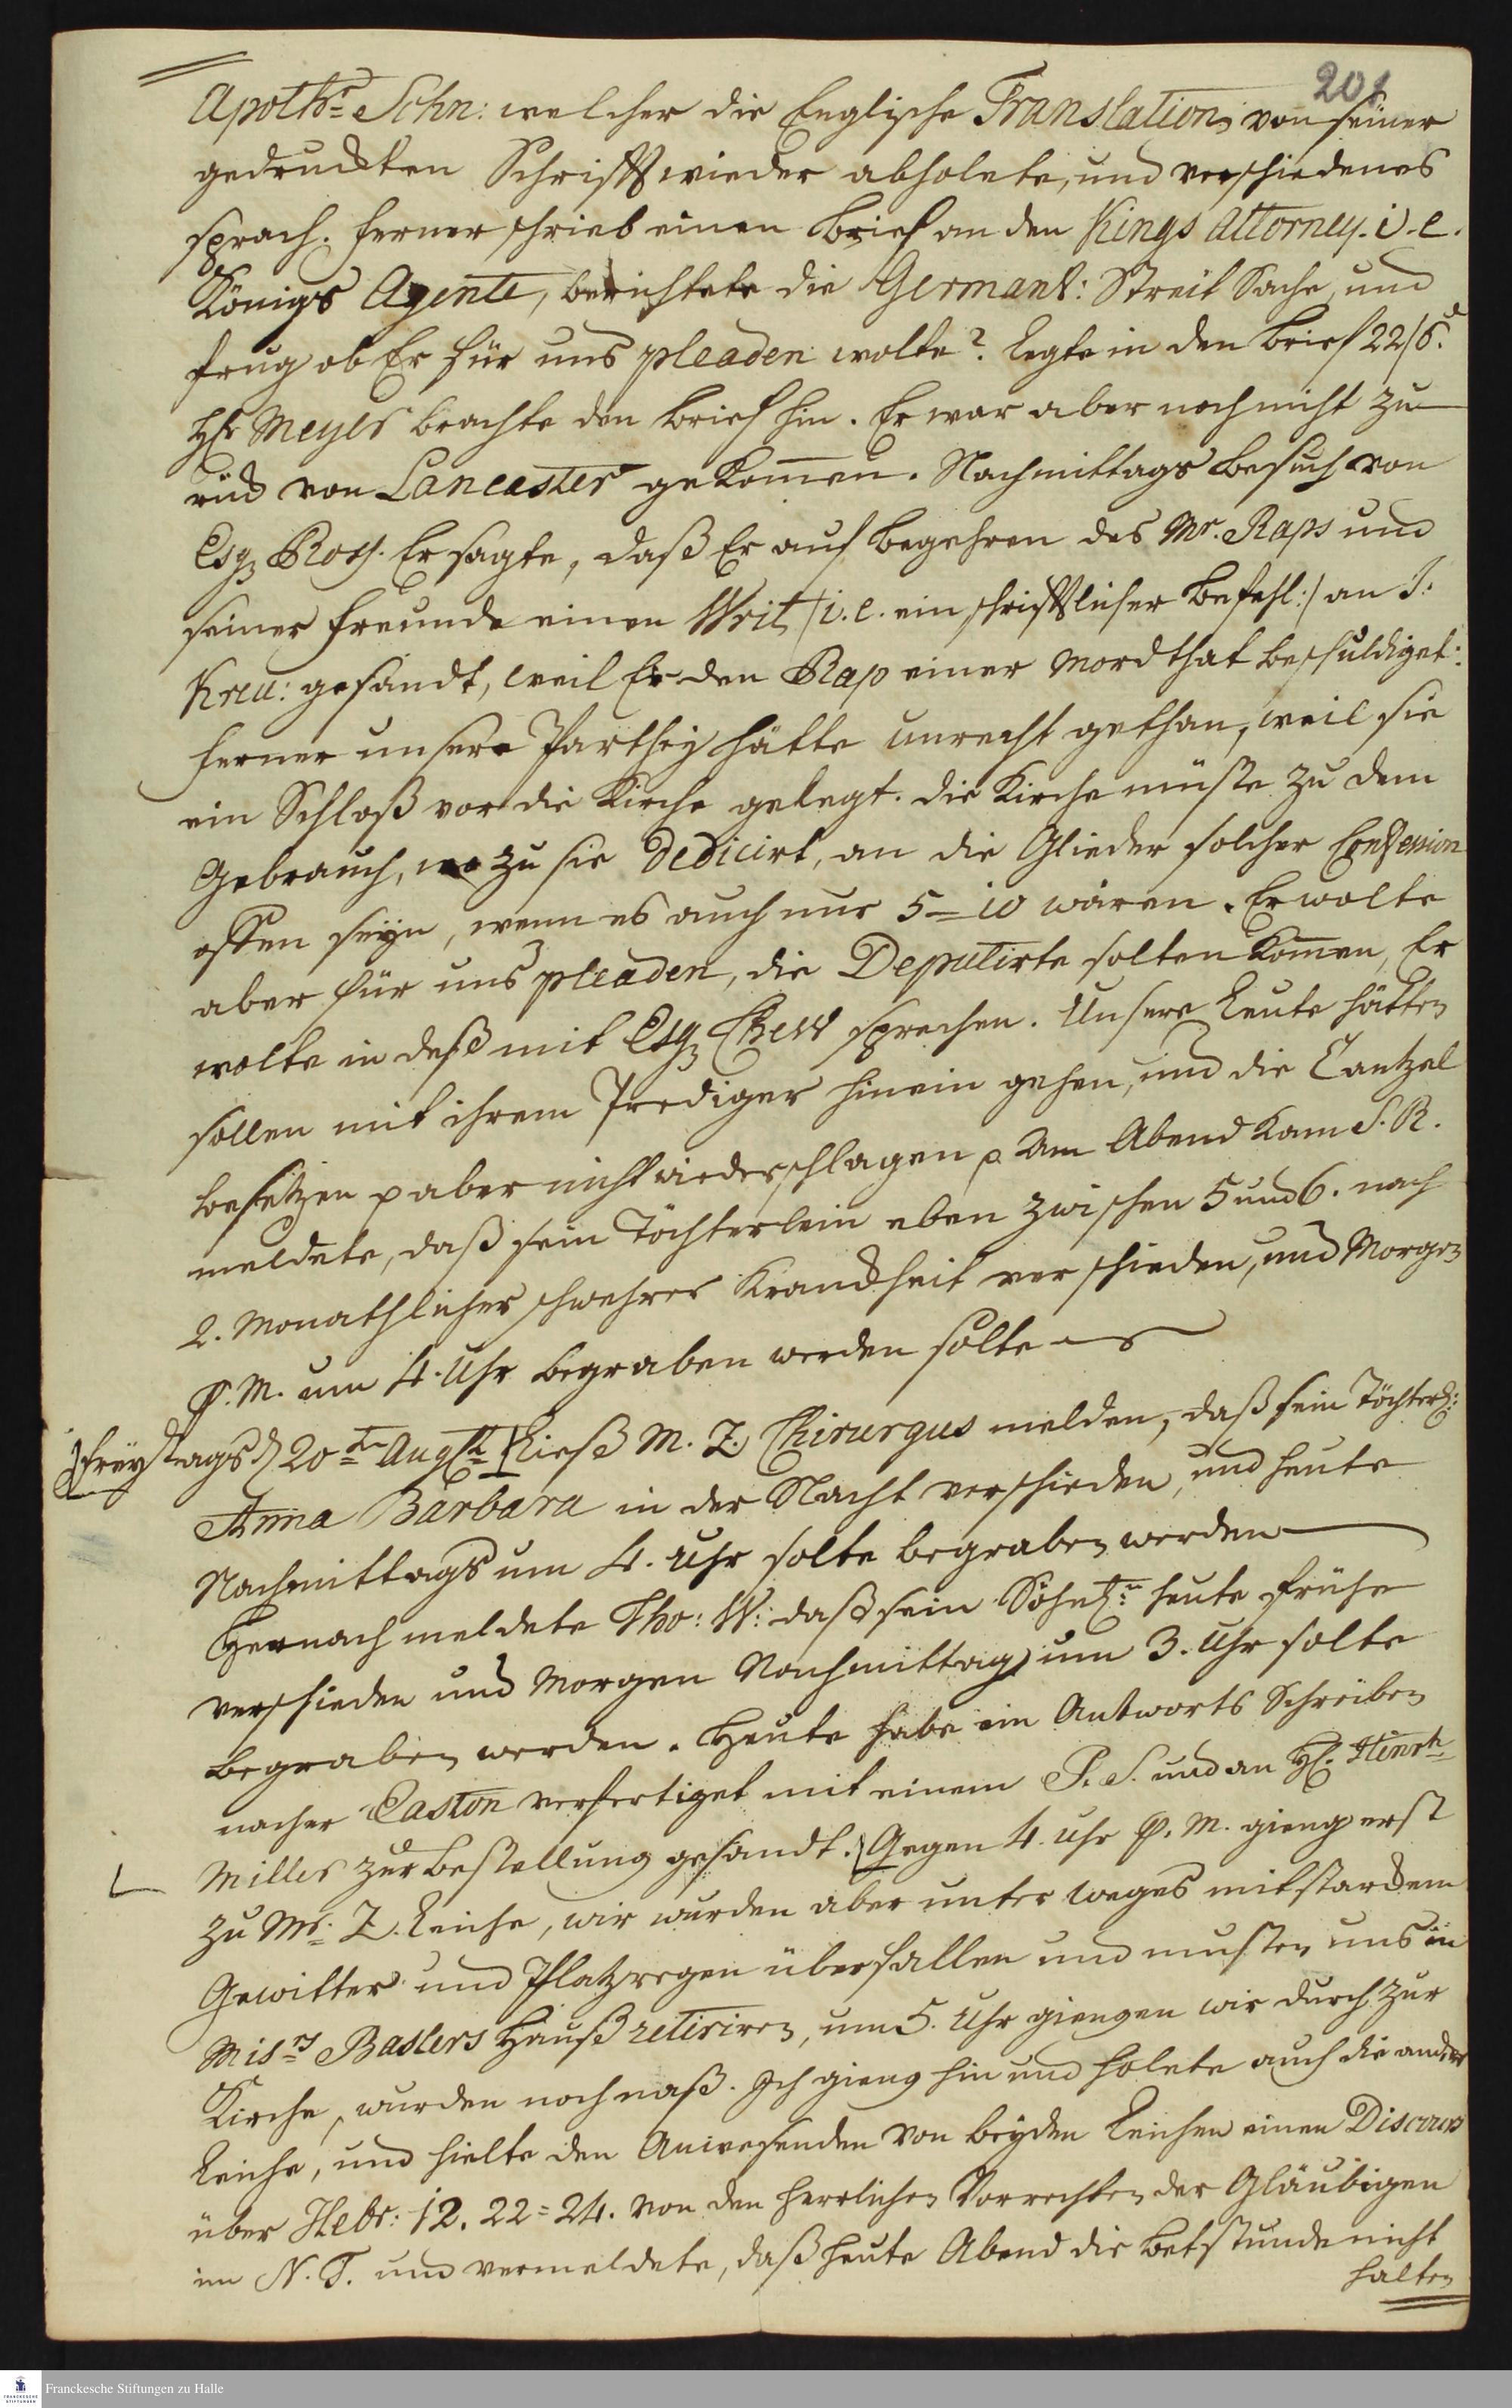 201
Apothr Schn: welcher die Englische Translation von seiner
gedruckten Schrifft wieder abholete, und verschiedenes
sprach. ferner schrieb einen Brief an den Kings Attorney. i. e.
Königs Agente, berichtete die Germant: Streit Sache, und
frug ob Er für uns pleaden wolte? legte in den Brief 22/6.d
Hr Meyer brachte den Brief hin. Er war aber noch nicht zu-
rück von Lancaster gekommen. Nachmittags Besuch von
Esqr Ross. Er sagte, daß Er auf Begehren des Mr. Raps und
seiner Freunde einen Writ /:i. e. ein schrifftlicher Befehl:/ an J:
Kreu: gesandt, weil Er den Rap einer Mordthat beschuldiget:
ferner unsere Parthey hätte unrecht gethan, weil sie
ein Schloß vor die Kirche gelegt. die Kirche müste zu dem
Gebrauch, wozu sie dedicirt, an die Glieder solcher Confession
offen seyn, wenn es auch nur 5=10 wären. Er wolte
aber für uns pleaden, die Deputirte solten kommen, Er
wolte in deß mit Esqr Chew sprechen. Unsere Leute hätten
sollen mit ihrem Prediger hinein gehen, und die Cantzel
besetzen p aber nicht wiederschlagen p. Am Abend kam S. R.
meldete, daß sein Töchterlein eben zwischen 5 und 6. nach
2. Monathlicher schwehrer Kranckheit verschieden, und Morgen
P. M. um 4. Uhr begraben werden solte
Freytags d 20ten Augst ließ M. Z. Chirurgus melden, daß sein Töchterl:
Anna Barbara in der Nacht verschieden, und heute
Nachmittags um 4. Uhr solte begraben werden
Hernach meldete Tho: W: daß sein Söhnl: heute frühe
verschieden und Morgen Nachmittag um 3. Uhr solte
begraben werden. Heute habe ein Antworts Schreiben
nacher Easton verfertiget mit einem P. S. und an H. Hinrh
Miller zur Bestellung gesandt. Gegen 4. Uhr P. M. gieng erst
zu Mr. Z. Leiche, wir wurden aber unter weges mit starckem
Gewitter und Platzregen überfallen und musten uns in
Misrs Baslers Hauß retiriren, um 5. Uhr giengen wir durch zur
Kirche, wurden noch naß. Ich gieng hin und holete auch die andere
Leiche, und hielte den Anwesenden von beyden Leichen einen Discours
über Hebr: 12. 22=24. von den herrlichen Vorrechten der Gläubigen
im N. T. und vermeldete, daß heute Abend die Betstunde nicht
halten
Franckesche Stiftungen zu Halle